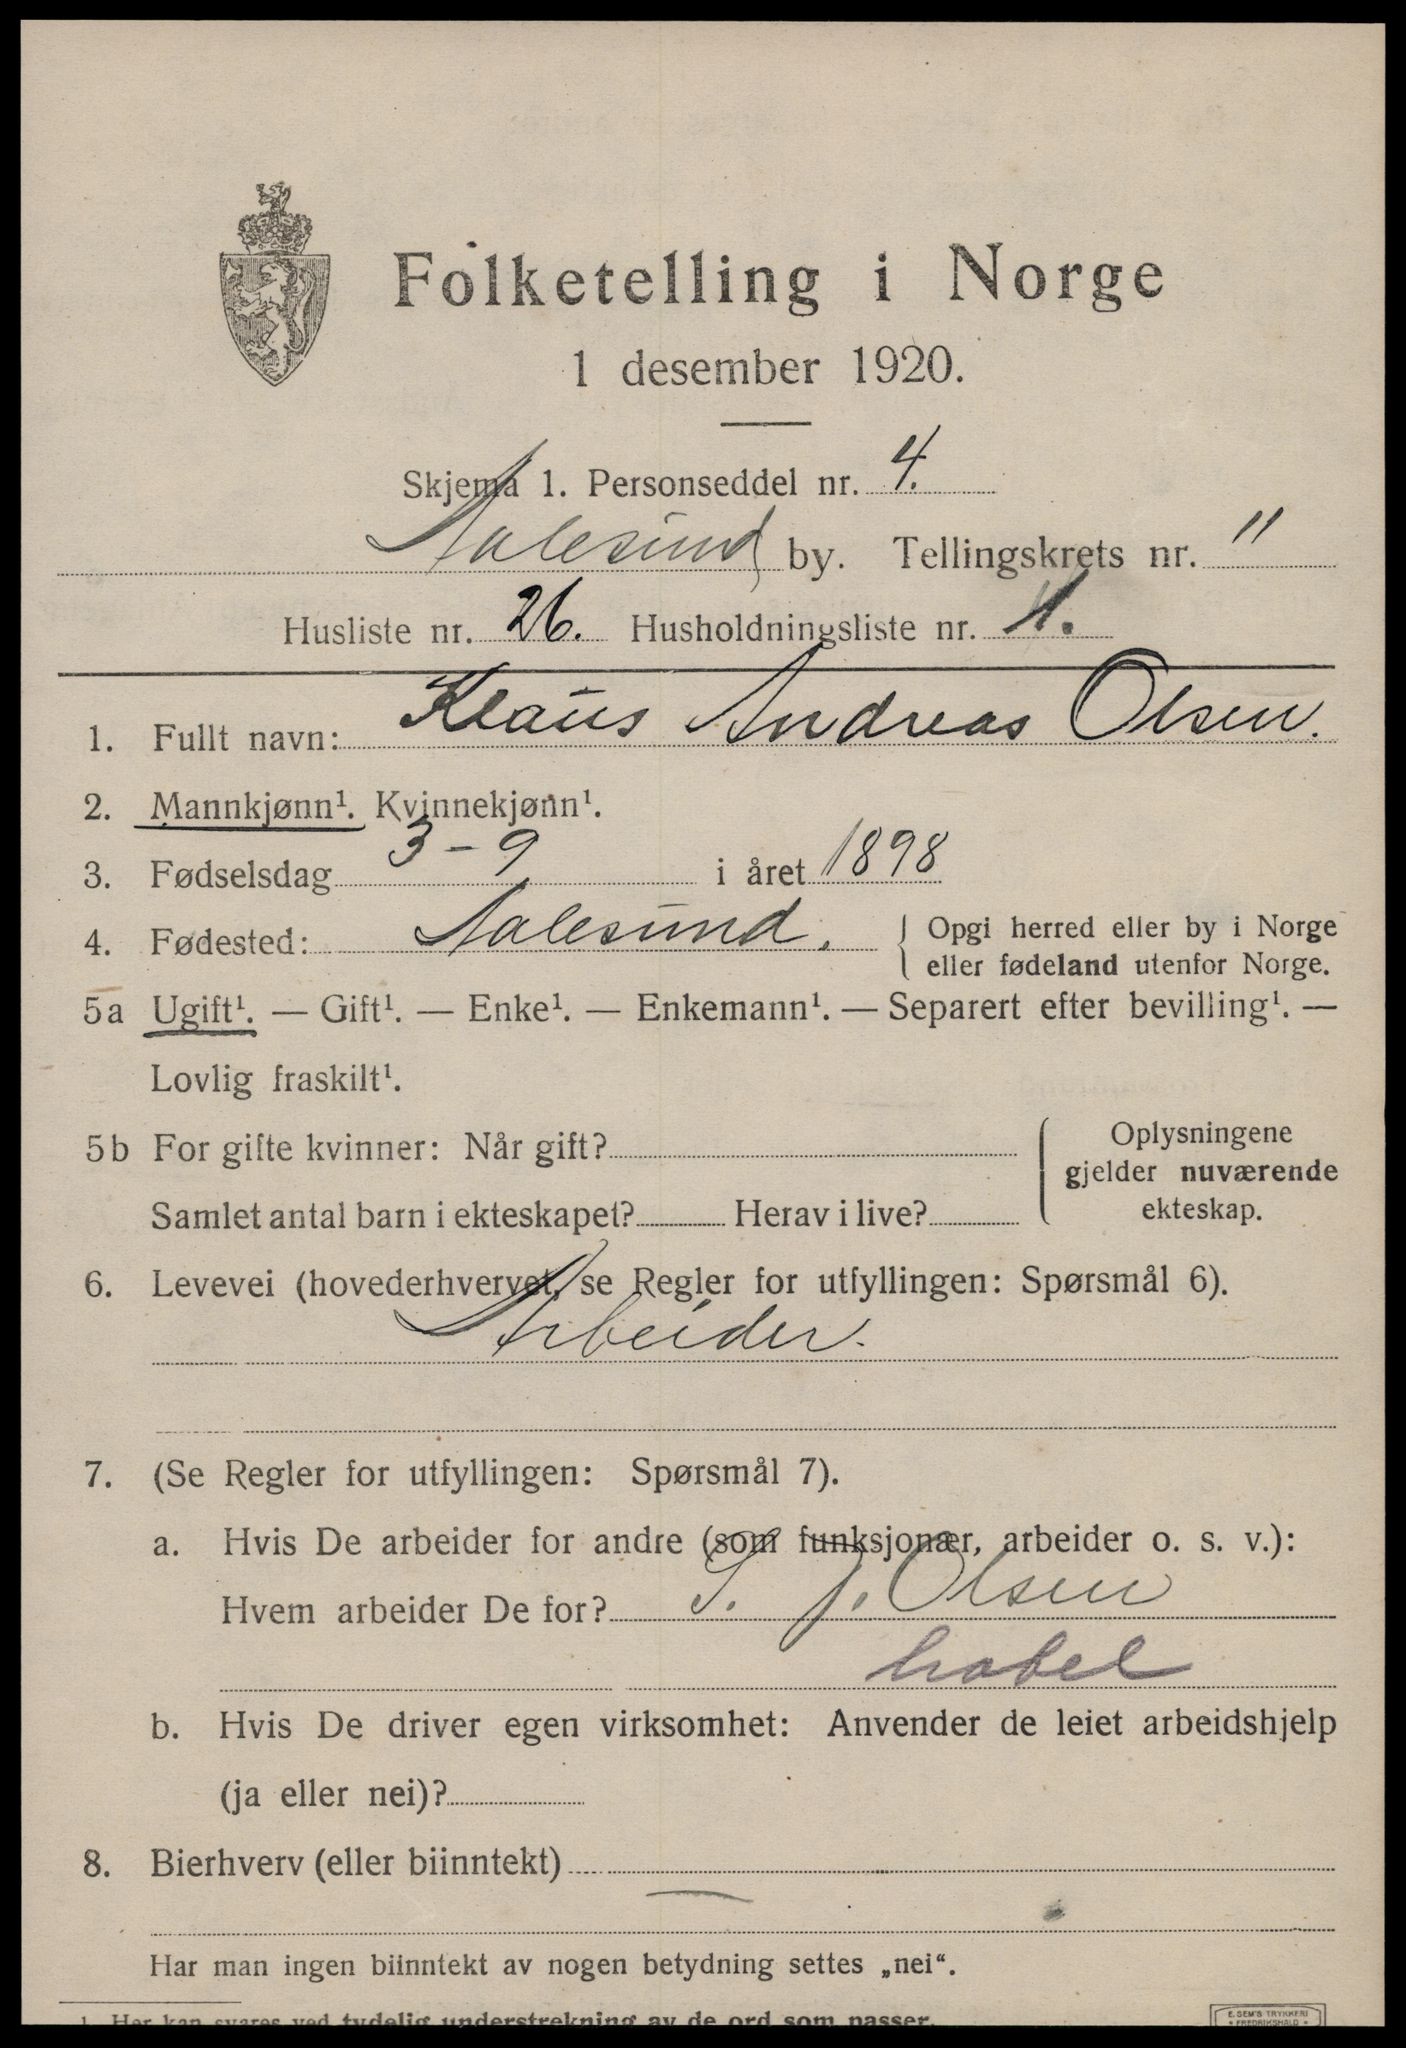 Folketelling i Norge
1 desember 1920.
Skjema 1. Personseddel nr. 4.
Aalesund by. Tellingskrets nr. 11
Husliste nr. 26. Husholdningsliste nr. 1.
1. Fullt navn: Klaus Andreas Olsen.
2. Mannkjønn¹. Kvinnekjønn¹.
3. Fødselsdag 3-9 i året 1898
4. Fødested: Aalesund. { Opgi herred eller by i Norge
eller fødeland utenfor Norge.
5a Ugift¹. — Gift¹. — Enke¹. — Enkemann¹. — Separert efter bevilling¹. —
Lovlig fraskilt¹.
5b For gifte kvinner: Når gift?
Samlet antal barn i ekteskapet? Herav i live?
{ Oplysningene
gjelder nuværende
ekteskap.
6. Levevei (hovederhvervet, se Regler for utfyllingen: Spørsmål 6).
Arbeider.
7. (Se Regler for utfyllingen: Spørsmål 7).
a. Hvis De arbeider for andre (som funksjonær, arbeider o. s. v.):
Hvem arbeider De for? S. J. Olsen
b. Hvis De driver egen virksomhet: Anvender de leiet arbeidshjelp
(ja eller nei)?
8. Bierhverv (eller biinntekt)
—
Har man ingen biinntekt av nogen betydning settes „nei“.
1. Her kan svares ved tydelig understrekning av de ord som passer.
E. SEM'S TRYKKERI
FREDRIKSHALD